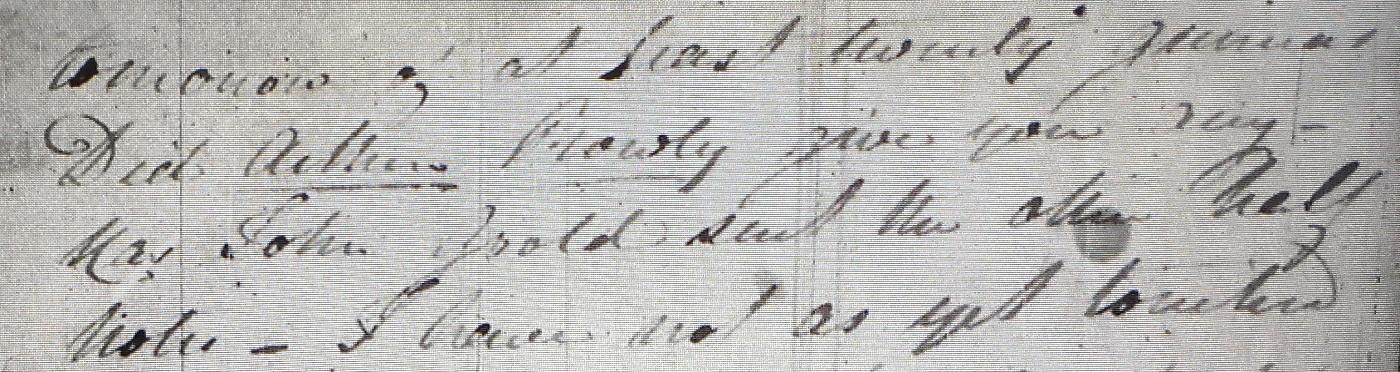 tomorrow of at least twenty guineas
Did Arthur Prowly give you any -
Has John Gold sent the other half
Note - I have not as yet